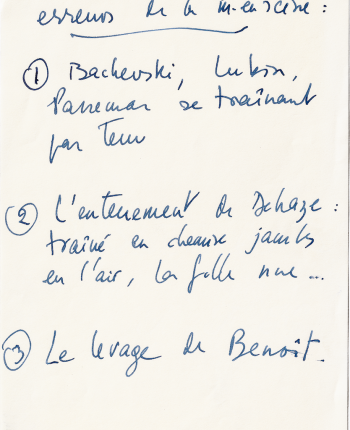 erreurs de la m. en scène :
① Bachevski, Lukin,
Parremar se traînant
par terre
② L'enterrement de Dehaze :
traîné en chemise jambes
en l'air, la folle nue ...
③ Le levage de Benoît.